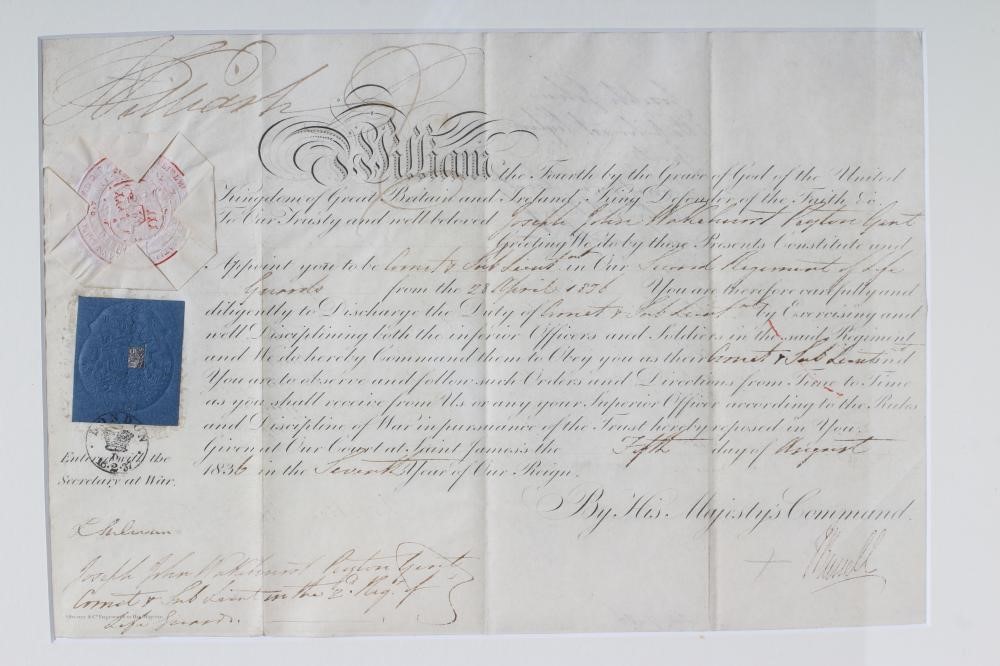 William R
William the Fourth by the Grace of God of the United
Kingdom of Great Britain and Ireland, King, Defender of the Faith &c.
To Our Trusty and well beloved Joseph John Wakehurst Peyton Gent
Greeting We do by these Presents Constitute and
Appoint you to be Cornet & Sub Lieut in Our Second Regiment of Life
Guards from the 28 April 1836 You are therefore carefully and
diligently to Discharge the Duty of Cornet & Sub Lieut by Exercising and
well Disciplining both the inferior Officers and Soldiers in the said Regiment
and We do hereby Command them to Obey you as their Cornet & Sub Lieut and
You are to observe and follow such Orders and Directions from Time to Time
as you shall receive from Us or any your Superior Officer according to the Rules
and Discipline of War in pursuance of the Trust hereby reposed in You.
Given at Our Court at Saint James's the Fifth day of August
1836 in the Seventh Year of Our Reign.
By His Majesty's Command.
LONDON
18.2.37
Entered with the
Secretary at War.
J Russell
Joseph John Wakehurst Peyton Gent
Cornet & Sub Lieut in the 2d Regt of
Life Guards.